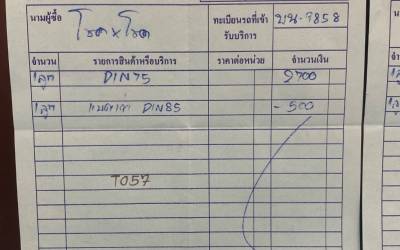 นามผู้ซื้อ โชค x โชค ทะเบียนรถที่เข้ารับบริการ ขน-9858
จำนวน รายการสินค้าหรือบริการ ราคาต่อหน่วย จำนวนเงิน
1ลูก DIN75 2700
1ลูก แบตเก่า DIN85 -500
T057